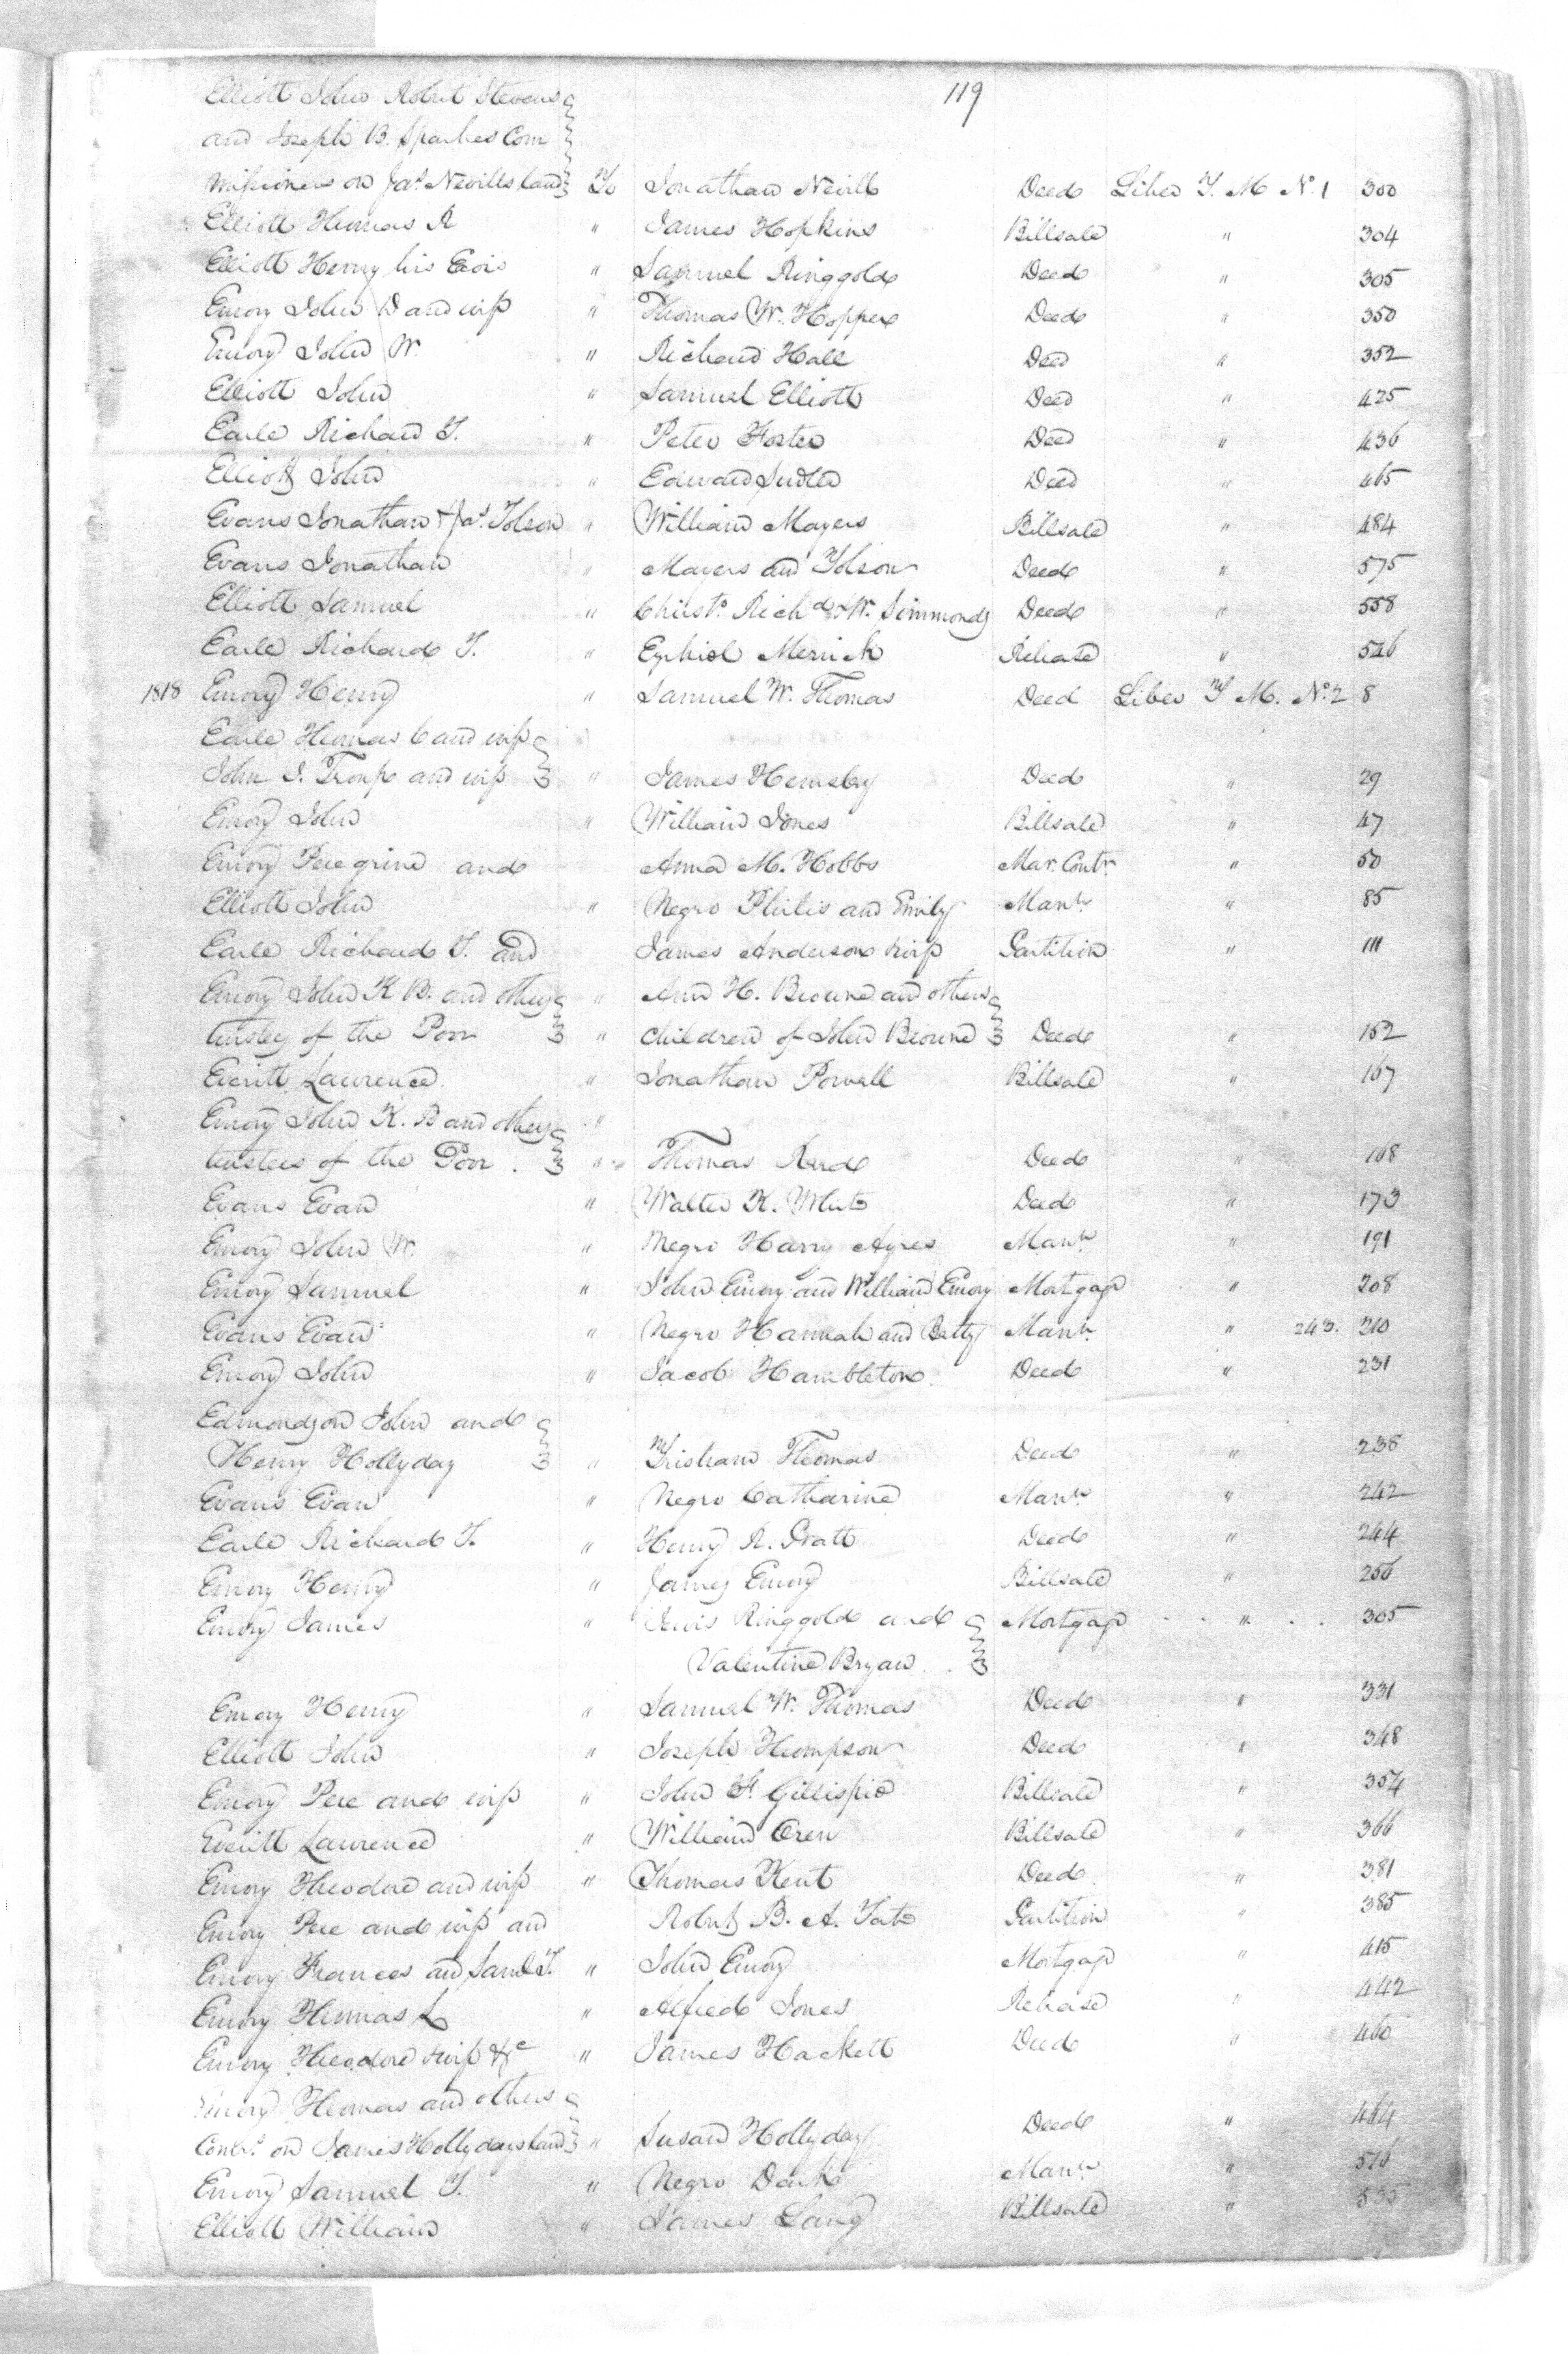 119
Elliott John Robert Stevens
and Joseph B. Sparkes Com
missioners on Jas. Nevills land To Jonathan Nevill Deed Liber T. M No. 1 300
Elliott Thomas R " James Hopkins Billsale " 304
Elliott Henry his Exois " Samuel Ringgold Deed " 305
Emory John D and wife " Thomas W. Hopper Deed " 350
Emory John W. " Richard Hall Deed " 352
Elliott John " Samuel Elliott Deed " 425
Earle Richard T. " Peter Foster Deed " 436
Elliott John " Edward Sudler Deed " 465
Evans Jonathan & Jas. Tolson " William Mayers Billsale " 484
Evans Jonathan " Mayers and Tolson Deed " 575
Elliott Samuel " Christo. Richd & W. Simmonds Deed " 558
Earle Richard T. " Ezekiel Merrick Release " 546
1818 Emory Henry " Samuel W. Thomas Deed Liber T M. No. 2 8
Earle Thomas C and wife
John I. Troup and wife " James Hemsley Deed " 29
Emory John " William Jones Billsale " 47
Emory Peregrine and Anna M. Hobbs Mar. Contr. " 50
Elliott John " Negro Philis and Emily Mann. " 85
Earle Richard T. and James Anderson & wife Partition " 111
Emory John K B. and others " Ann H. Browne and others
trustees of the Poor " children of John Browne Deed " 152
Everitt Lawrence " Jonathan Powell Billsale " 167
Emory John K. B and others "
trustees of the Poor. " Thomas Reed Deed " 168
Evans Evan " Walter K. White Deed " 173
Emory John W. " Negro Harry Ayres Mann. " 191
Emory Samuel " John Emory and William Emory Mortgage " 208
Evans Evan " Negro Hannah and Betty Mann. " 243. 210
Emory John " Jacob Hambleton Deed " 231
Edmondson John and
Henry Hollyday " Tristram Thomas Deed " 238
Evans Evan " Negro Catharine Mann. " 242
Earle Richard T. " Henry R. Pratt Deed " 244
Emory Henry " James Emory Billsale " 256
Emory James " Lewis Ringgold and Mortgage " 305
Valentine Bryan
Emory Henry " Samuel W. Thomas Deed " 331
Elliott John " Joseph Thompson Deed " 348
Emory Pere and wife " John F. Gillispie Billsale " 354
Everitt Lawrence " William Oren Billsale " 366
Emory Theodore and wife " Thomas Kent Deed " 381
Emory Pere and wife and Robert B. A. Tate Partition " 385
Emory Frances and Saml T. " John Emory Mortgage " 415
Emory Thomas L " Alfred Jones Release " 442
Emory Theodore & wife &c " James Hackett Deed " 460
Emory Thomas and others
Comrs. on James Hollydays land " Susan Hollyday Deed " 464
Emory Samuel T. " Negro Dark Mann. " 516
Elliott William " James Lang Billsale " 535